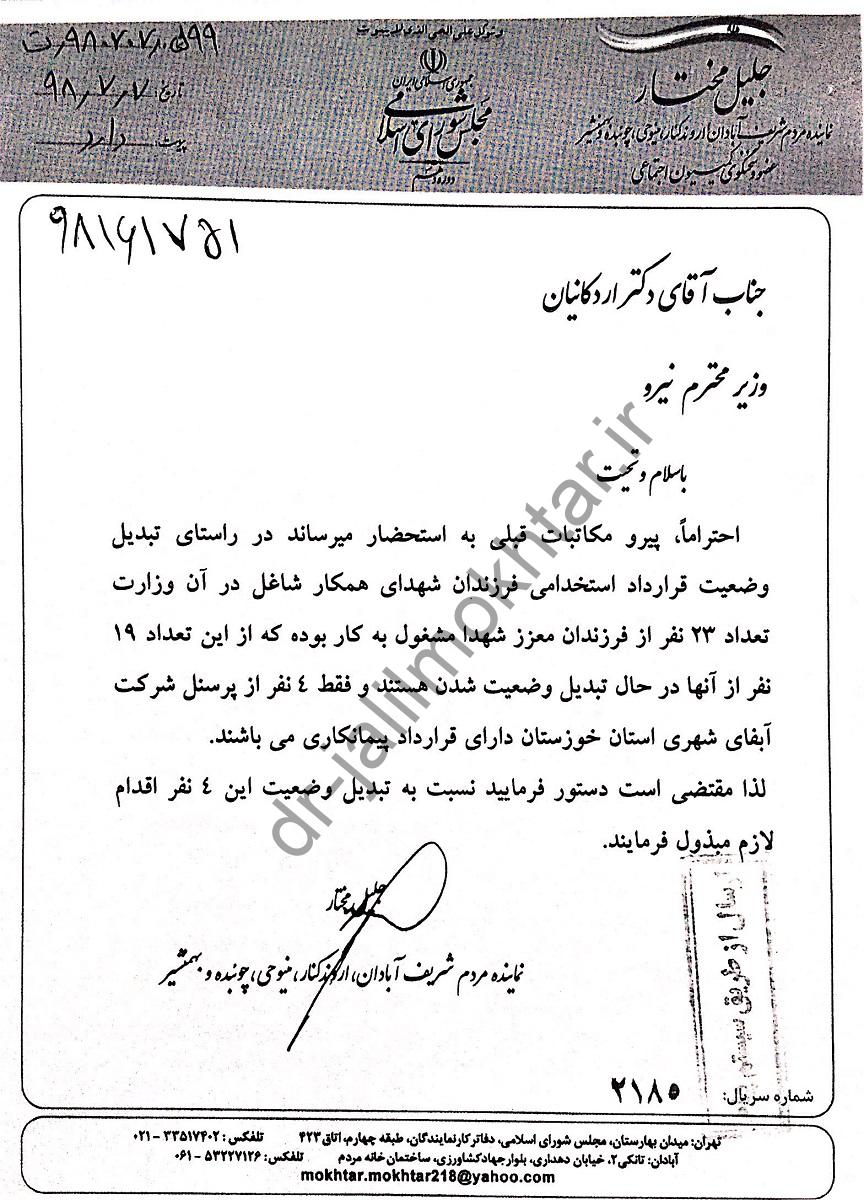 و توکل علی الحی الذی لا یموت
جمهوری اسلامی ایران
مجلس شورای اسلامی
دوره دهم
جلیل مختار
نماینده مردم شریف آبادان، اروندکنار، منیوحی، چوئبده و بهمنشیر
عضو و سخنگوی کمیسیون اجتماعی
تاریخ: ۹۸٫۷٫۷
پیوست: دارد
جناب آقای دکتر اردکانیان
وزیر محترم نیرو
باسلام و تحیت
احتراماً، پیرو مکاتبات قبلی به استحضار میرساند در راستای تبدیل
وضعیت قرارداد استخدامی فرزندان شهدای همکار شاغل در آن وزارت
تعداد ۲۳ نفر از فرزندان معزز شهدا مشغول به کار بوده که از این تعداد ۱۹
نفر از آنها در حال تبدیل وضعیت شدن هستند و فقط ٤ نفر از پرسنل شرکت
آبفای شهری استان خوزستان دارای قرارداد پیمانکاری می باشند.
لذا مقتضی است دستور فرمایید نسبت به تبدیل وضعیت این ٤ نفر اقدام
لازم مبذول فرمایند.
جلیل مختار
نماینده مردم شریف آبادان، اروندکنار، منیوحی، چوئبده و بهمنشیر
ارسال از طریق سیستم
شماره سریال: ۲۱۸۵
تهران: میدان بهارستان، مجلس شورای اسلامی، دفاتر کار نمایندگان، طبقه چهارم، اتاق ۴۲۳ تلفکس: ۳۳۵۱۷۴۰۲ - ۰۲۱
آبادان: تانکی۲، خیابان دهداری، بلوار جهاد کشاورزی، ساختمان خانه مردم تلفکس: ۵۳۲۲۷۱۲۶ - ۰۶۱
mokhtar.mokhtar218@yahoo.com
dr-jalilmokhtar.ir